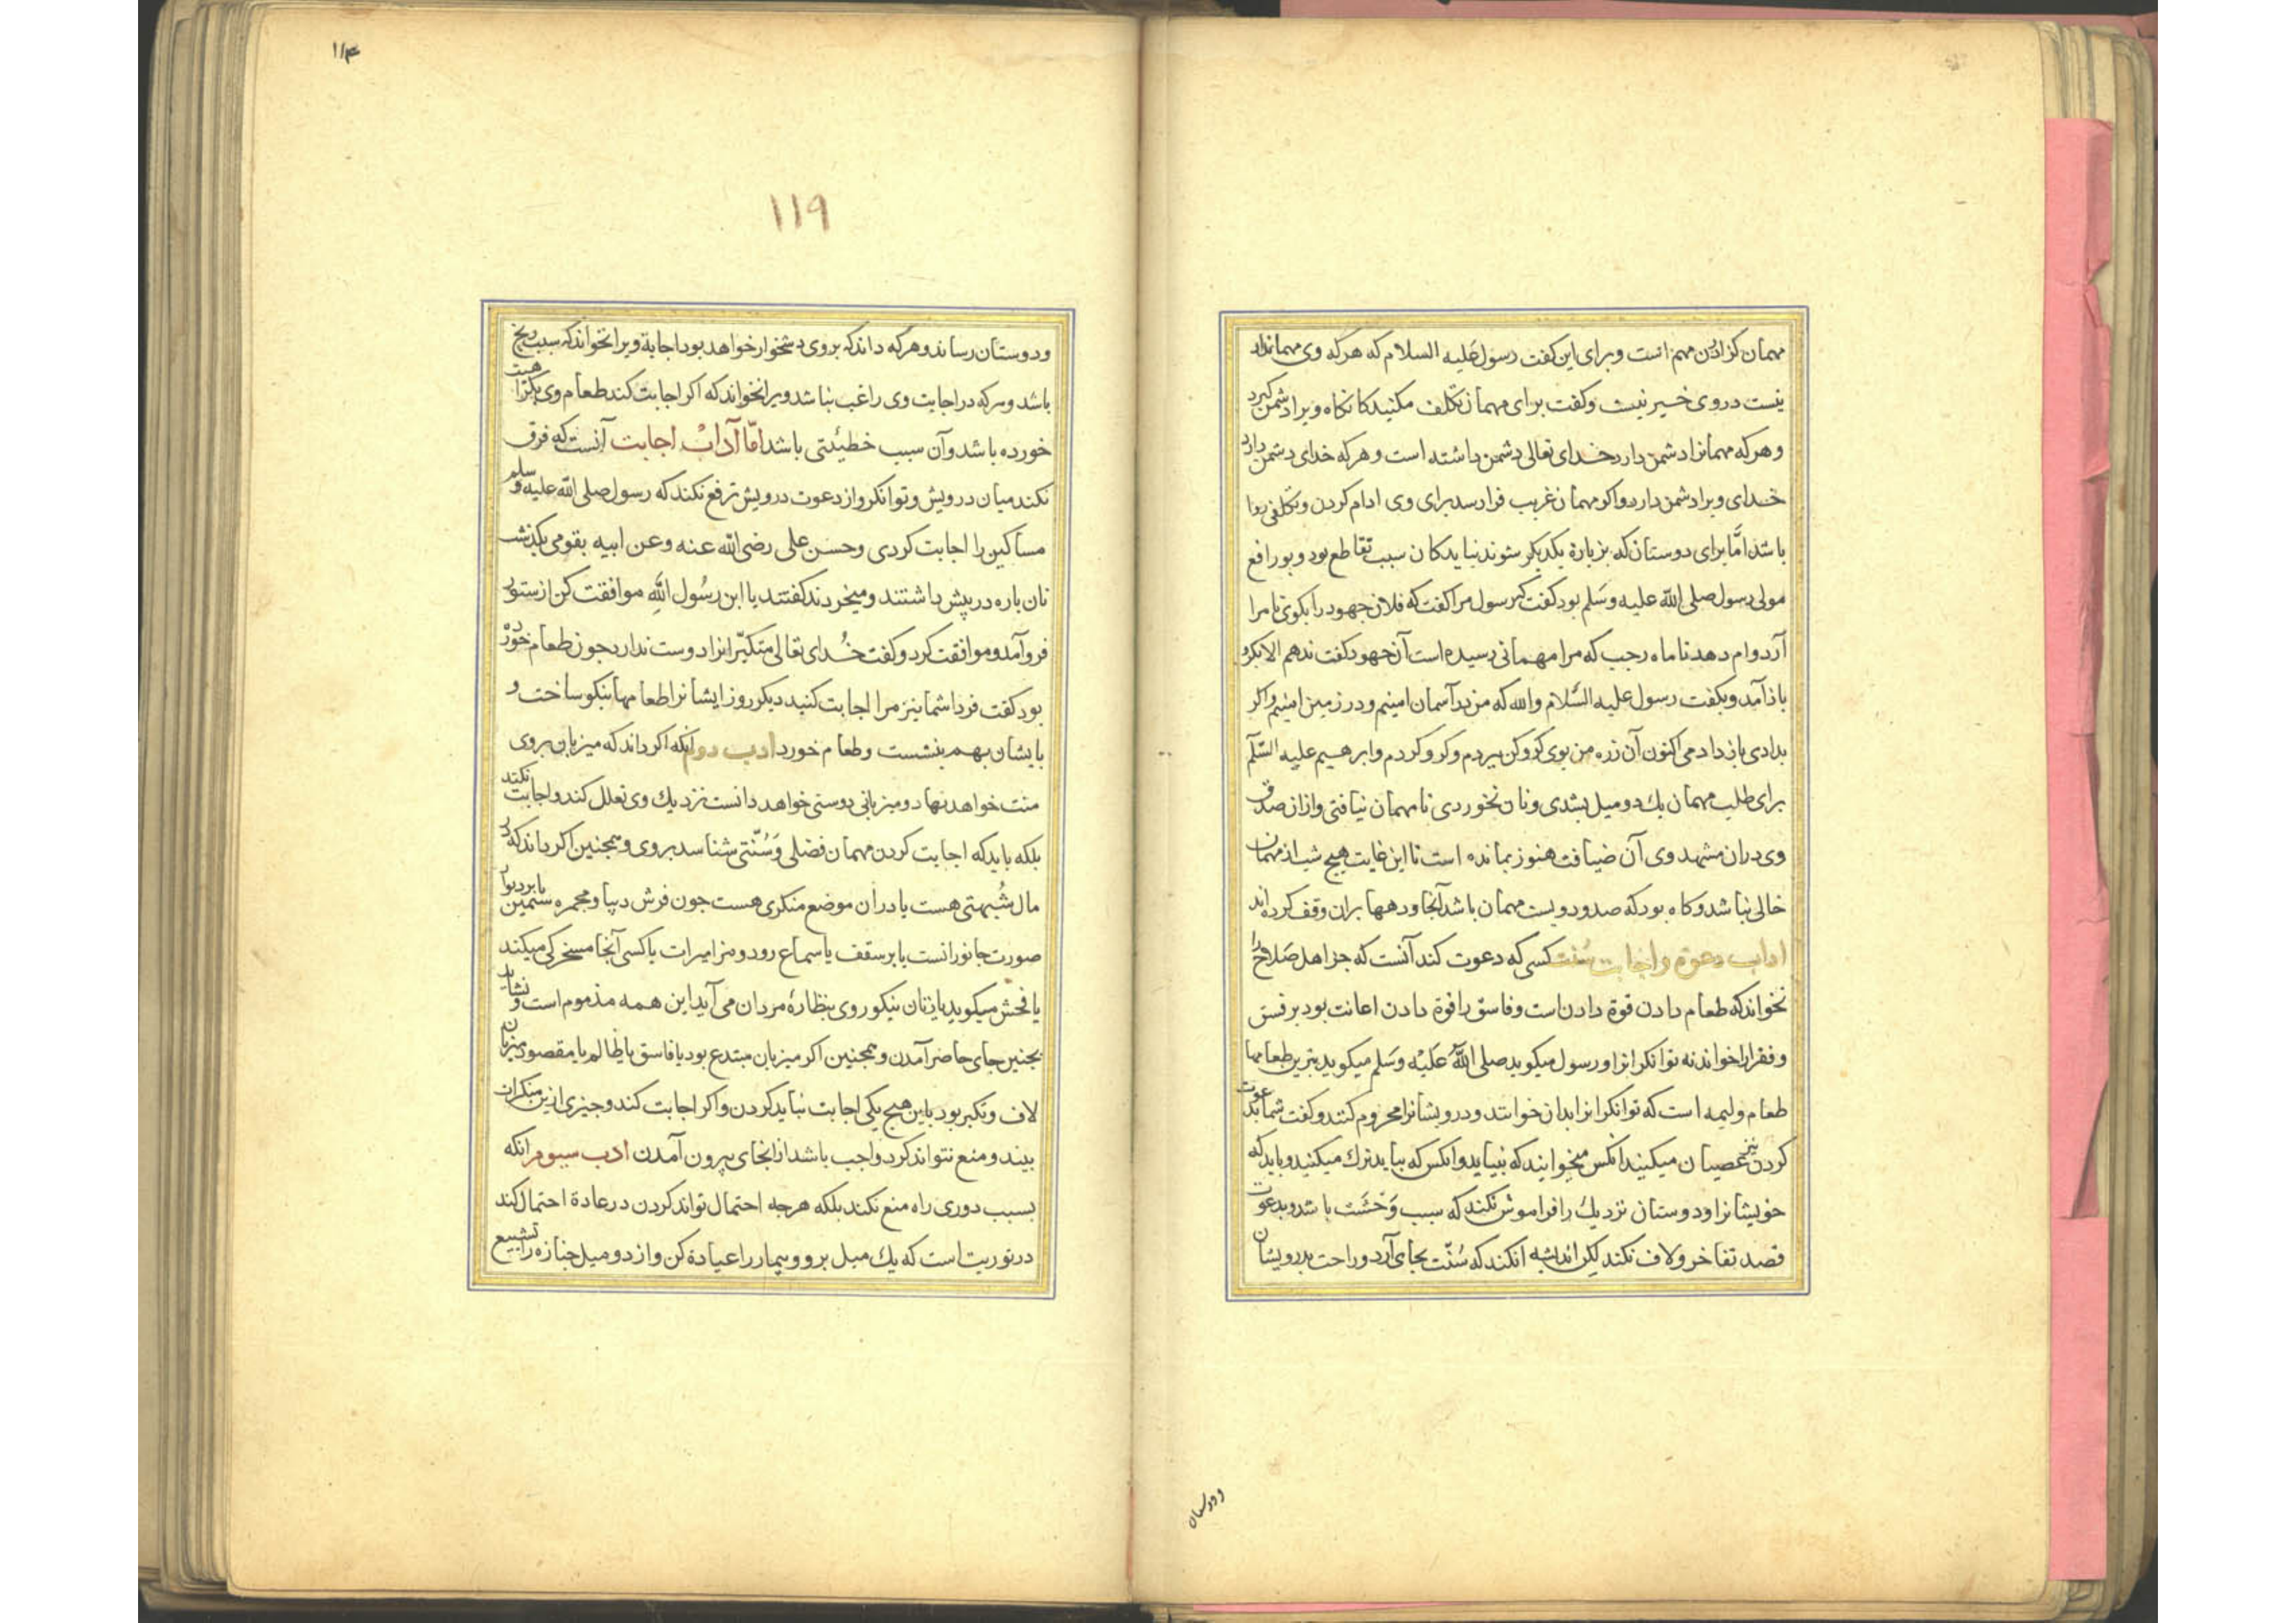 مهمان کزاردن مهم انست وبرای این کفت رسول علیه السلام که هرکه وی مهماندار
نیست دروی خیر نیست وکفت برای مهمان تکلف مکنید کانکاه ویرا دشمن کیرد
وهرکه مهمانرا دشمن دارد خدای تعالی دشمن داشته است وهرکه خدای دشمن دارد
خدای ویرا دشمن دارد واکر مهمان غریب فرا رسد برای وی ادام کردن وتکلفی روا
باشد امّا برای دوستان که بزیارة یکدیکر شوند نباید کان سبب تقاطع بود وبورافع
مولی رسول صلی الله علیه وسلم بود کفت که رسول مرا کفت که فلان جهود را بکوی تا مرا
آرد وام دهد تا ماه رجب که مرا مهمانی رسیده است آن جهود کفت ندهم الا بکرو
باز آمد وبکفت رسول علیه السّلام والله که من بر آسمان امینم ودر زمین امینم واکر
بدادی باز دادمی اکنون آن زره من بوی کروکن ببردم وکرو کردم وابرهیم علیه السّلم
برای طلب مهمان یك دو میل بشدی ونان نخوردی تا مهمان نیافتی واز ان صدق
وی دران مشهد وی آن ضیافت هنوز بمانده است تا این غایت هیچ شب از مهمان
خالی نباشد وکاه بود که صد ودویست مهمان باشد آنجا ودهها بران وقف کرده اند
اداب دعوة واجابت سُنت کسی که دعوت کند آنست که جز اهل صَلاح را
نخواند که طعام دادن قوة دادن است وفاسق را قوة دادن اعانت بود بر فسق
وفقرا را خواند نه توانکرانرا ورسول میکوید صلی اللهُ عَلیْه وسَلم میکوید بترین طعامها
طعام ولیمه است که توانکرانرا بدان خوانند ودرویشانرا محروم کنند وکفت شما بدعوت
کردن نیز عصیان میکنید انکس میخوانید که نیاید وانکس که بیاید ترك میکنید وباید که
خویشانرا ودوستان نزدیك را فراموش نکند که سبب وَحْشَت باشد وبدعوت
قصد تفاخر ولاف نکند لیکن اندیشه انکند که سُنّت بجای آرد وراحت بدرویشان
ودوستان
۱۱۴
۱۱۹
ودوستان رساند وهرکه داند که بروی دشخوار خواهد بود اجابة ویرا نخواند که سبب رنج
باشد وهرکه در اجابت وی راغب نباشد ویرا نخواند که اکر اجابت کند طعام وی بکراهیت
خورده باشد وآن سبب خطیئتی باشد امّا آدابْ اجابت آنست که فرق
نکند میان درویش وتوانکر واز دعوت درویش ترفع نکند که رسول صلی الله علیه وسلم
مساکین را اجابت کردی وحسن علی رضی الله عنه وعن ابیه بقومی بکذشت
نان باره در پیش داشتند ومیخوردند کفتند یا ابن رسُول اللّه موافقت کن از ستور
فروآمد وموافقت کرد وکفت خُدای تعالی متکبّرانرا دوست ندارد چون طعام خورده
بود کفت فردا شما نیز مرا اجابت کنید دیکر روز ایشانرا طعامها نیکو ساخت و
بایشان بهم بنشست وطعام خورد ادب دوم انکه اکر داند که میزبان بروی
منت خواهد نهاد ومیزبانی دوستی خواهد دانست نزدیك وی تعلل کند واجابت نکند
بلکه باید که اجابت کردن مهمان فضلی وَسُنّتی شناسد بروی وهمچنین اکر داند که در
مال شُبهتی هست یا دران موضع منکری هست چون فرش دیبا ومجمره سیمین یا بر دیوار
صورت جانورانست یا بر سقف یا سماع رود ومزامیرات یا کسی آنجا مسخرکی میکند
یا فحش میکوید یا زنان نیکو روی بنظارۀ مردان می آید این همه مذموم است ونشاید
بجنین جای حاضر آمدن وهمچنین اکر میزبان مبتدع بود یا فاسق یا ظالم یا مقصود میزبان
لاف وتکبر بود باین هیچ یکی اجابت نباید کردن واکر اجابت کند وچیزی ازین منکرات
بیند ومنع نتواند کرد واجب باشد از انجای بیرون آمدن ادب سیوم انکه
بسبب دوری راه منع نکند بلکه هرجه احتمال تواند کردن در عادة احتمال کند
در توریت است که یك میل برو وبیمار را عیادة کن واز دو میل جنازه را تشییع